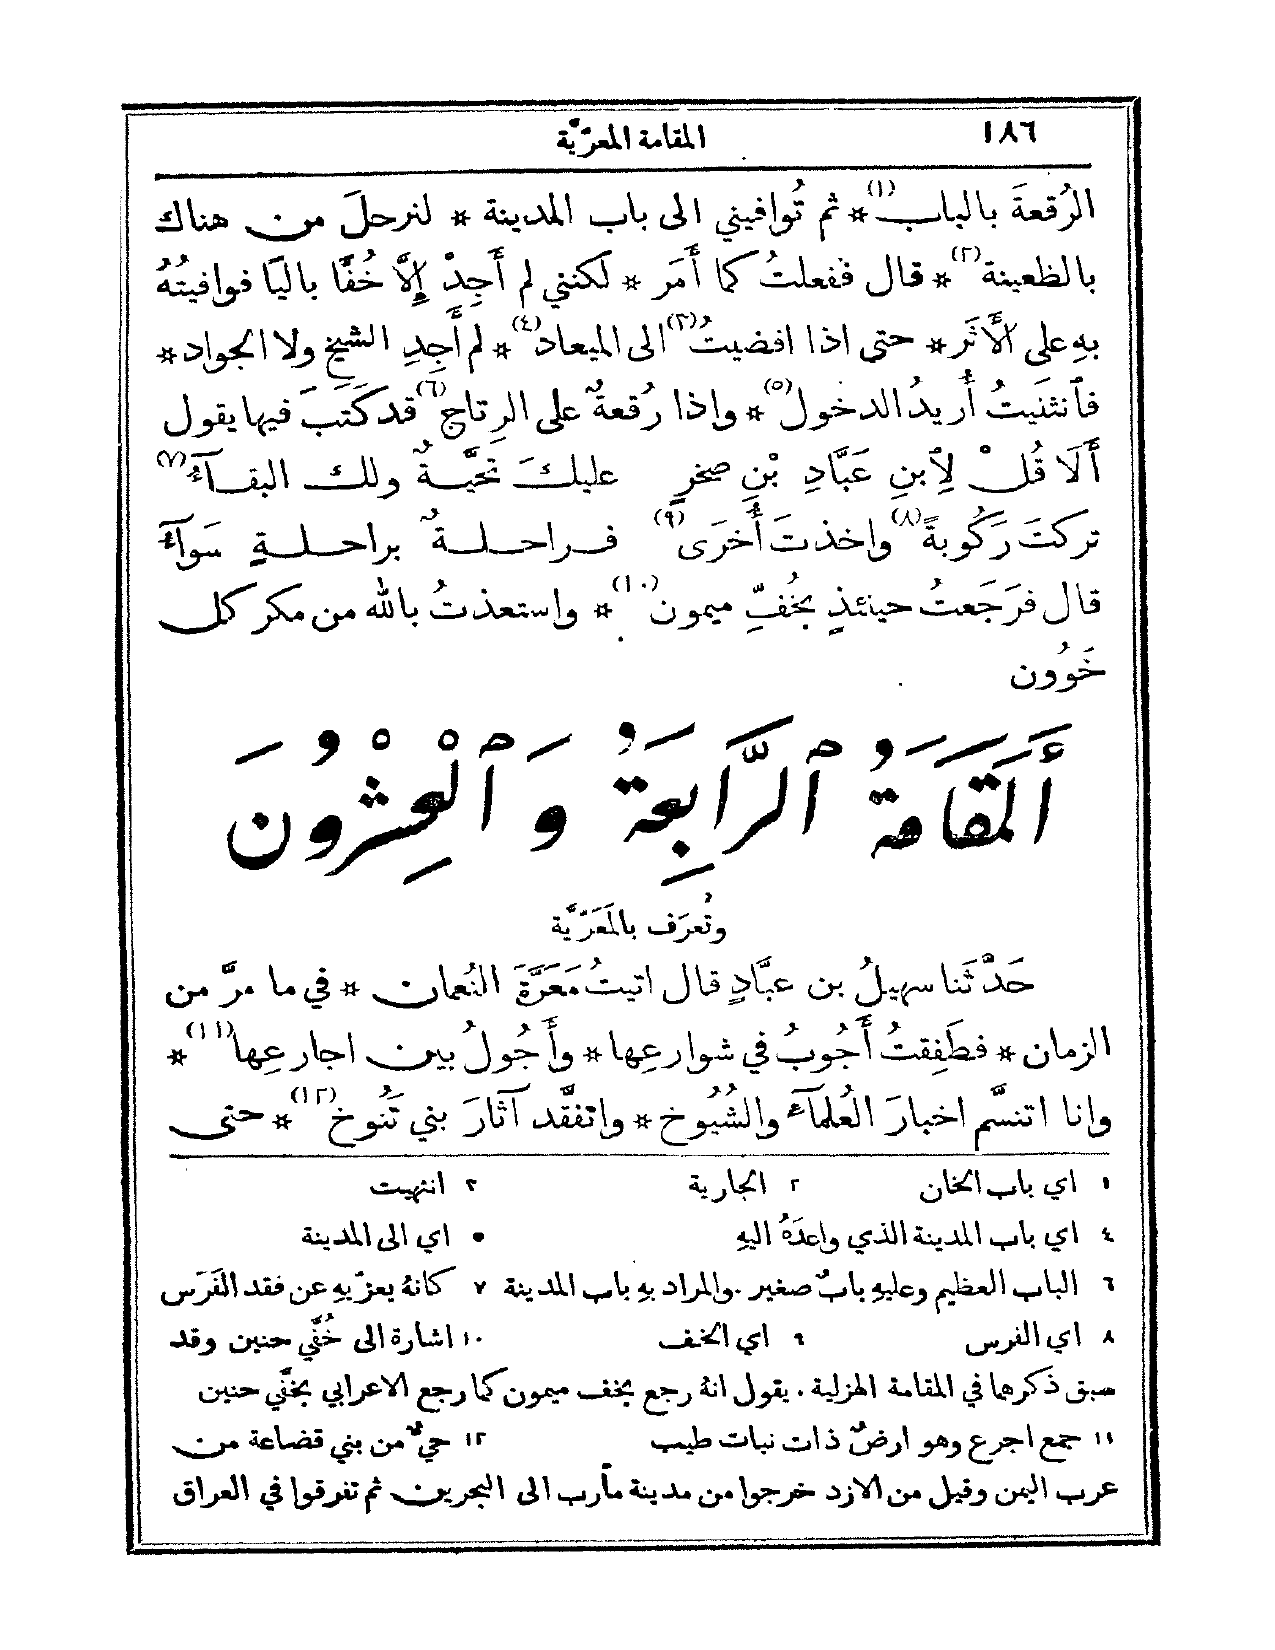 ١٨٦ المقامة المعرّيَّة
الرُقعةَ بالباب(١)* ثم تُوافيني الى باب المدينة * لنرحلَ من هناك
بالظعينة(٢)* قال ففعلتُ كما أَمَر * لكنني لم أَجِدْ إِلَّا خُفًّا باليًا فوافيتُهُ
بهِ على الأَثَر* حتى اذا افضيتُ(٣)الى الميعاد(٤)* لم أَجِدِ الشيخَ ولا الجواد*
فٱنثنيتُ أُريدُ الدخول(٥)* واذا رُقعةٌ على الرِتاج(٦)قد كَتَبَ فيها يقول
أَلَا قُلْ لِٱبنِ عَبَّادِ بْنِ صخرٍ عليكَ تحيَّةٌ ولك البقآءُ(٧)
تركتَ رَكُوبةً(٨)واخذتَ أُخرَى(٩) فراحلةٌ براحلةٍ سَوآءُ
قال فرَجَعتُ حينئذٍ بخُفِّ ميمون(١٠)* واستعذتُ بالله من مكر كل
خَوُون
أَلمَقَامَةُ ٱلرَّابِعَةُ وَٱلْعِشْرُونَ
وتُعرَف بالمَعَرّيَّة
حَدَّثنا سهيلُ بن عبَّادٍ قال اتيتُ مَعَرَّةَ النُعمان * في ما مرَّ من
الزمان * فطَفِقتُ أَجُوبُ في شوارعِها * وأَجُولُ بين اجارعِها(١١)*
وانا اتنسَّم اخبارَ العُلمآءِ والشُيُوخ * واتفقَّد آثارَ بني تَنُوخ(١٢)* حتى
١ اي باب الخان ٢ الجارية ٣ انتهيت
٤ اي باب المدينة الذي واعدَهُ اليهِ ٥ اي الى المدينة
٦ الباب العظيم وعليهِ بابٌ صغير. والمراد بهِ باب المدينة ٧ كانهُ يعزّيهِ عن فقد الفَرَس
٨ اي الفرس ٩ اي الخف ١٠ اشارة الى خُفَّي حنين وقد
سبق ذكرها في المقامة الهزلية. يقول انهُ رجع بخف ميمون كما رجع الاعرابي بخفَّي حنين
١١ جمع اجرع وهو ارضٌ ذات نبات طيب ١٢ حيٌّ من بني قضاعة من
عرب اليمن وقيل من الازد خرجوا من مدينة مأرب الى البحرين ثم تفرقوا في العراق